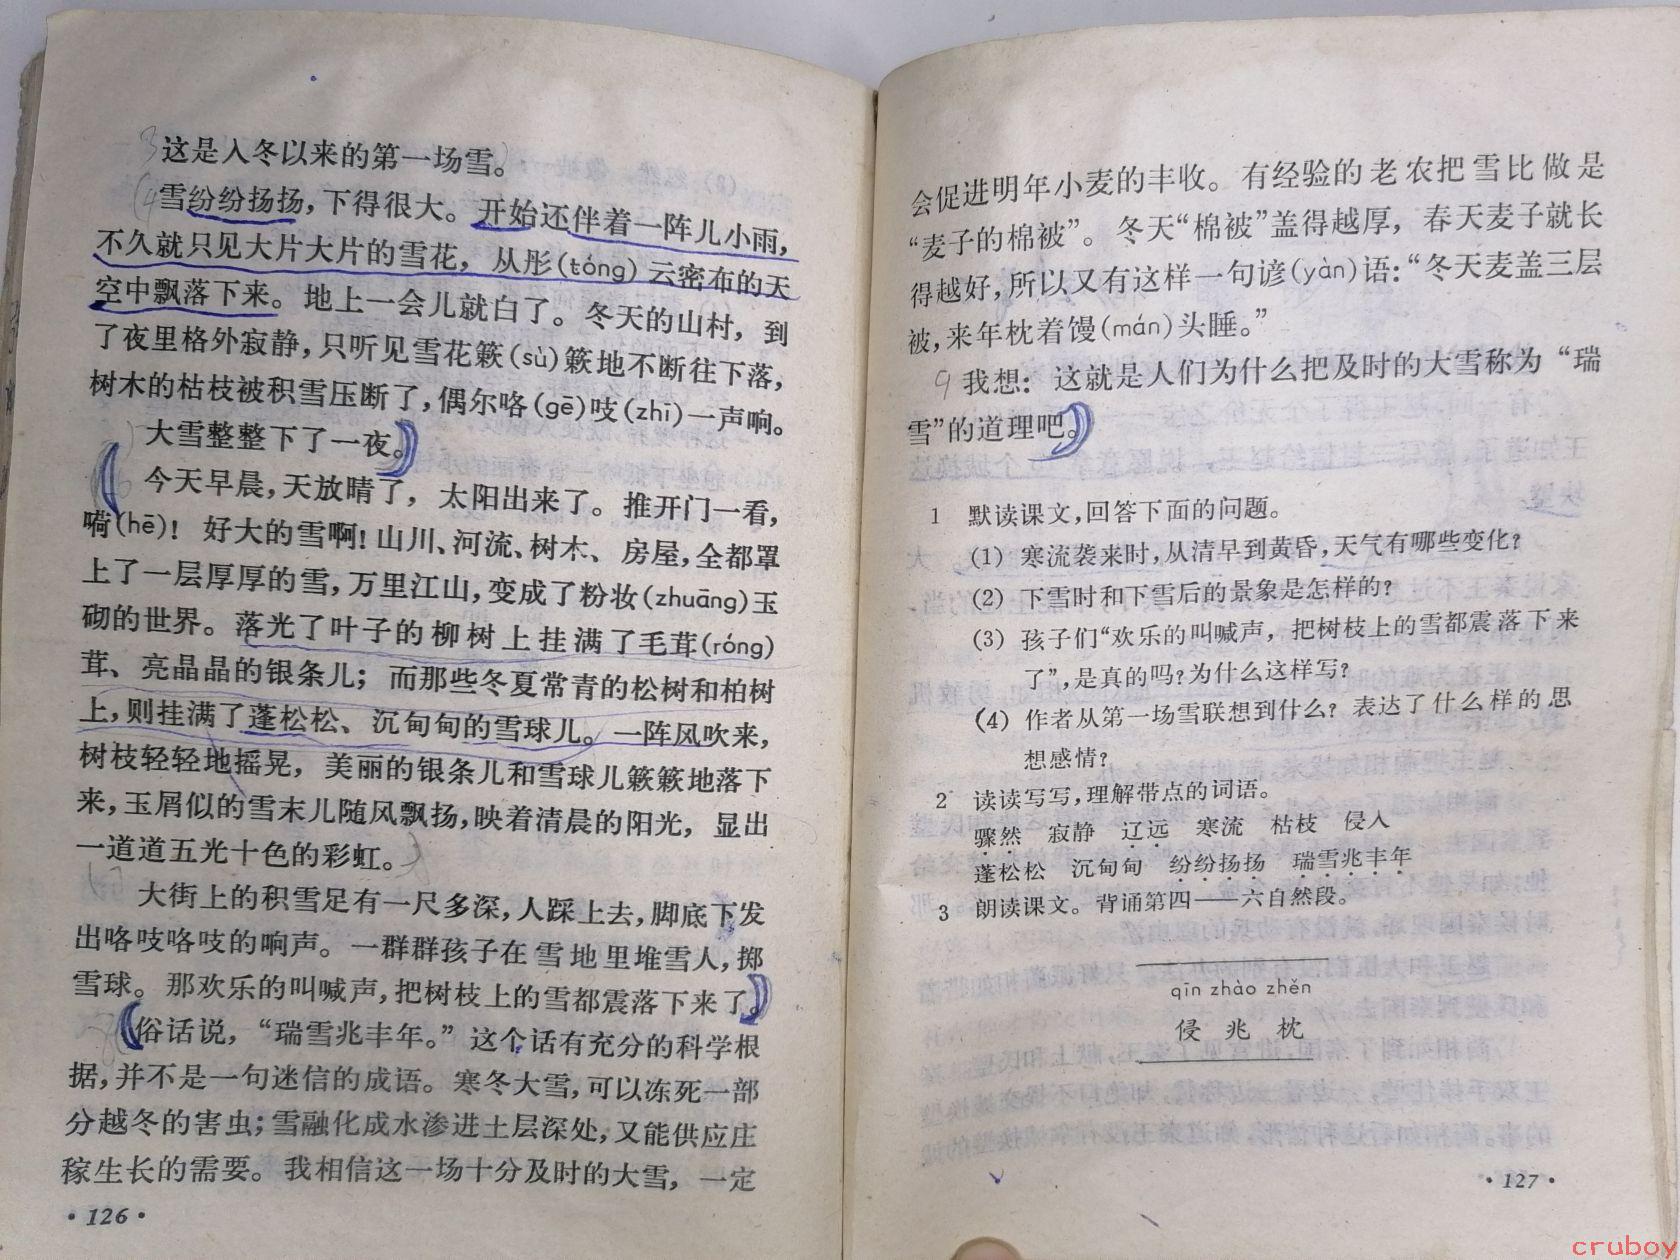 3 这是入冬以来的第一场雪。
(4 雪纷纷扬扬，下得很大。开始还伴着一阵儿小雨，
不久就只见大片大片的雪花，从彤(tóng)云密布的天
空中飘落下来。地上一会儿就白了。冬天的山村，到
了夜里格外寂静，只听见雪花簌(sù)簌地不断往下落，
树木的枯枝被积雪压断了，偶尔咯(gē)吱(zhī)一声响。
大雪整整下了一夜。
今天早晨，天放晴了，太阳出来了。推开门一看，
嗬(hē)！好大的雪啊！山川、河流、树木、房屋，全都罩
上了一层厚厚的雪，万里江山，变成了粉妆(zhuāng)玉
砌的世界。落光了叶子的柳树上挂满了毛茸(róng)
茸、亮晶晶的银条儿；而那些冬夏常青的松树和柏树
上，则挂满了蓬松松、沉甸甸的雪球儿。一阵风吹来，
树枝轻轻地摇晃，美丽的银条儿和雪球儿簌簌地落下
来，玉屑似的雪末儿随风飘扬，映着清晨的阳光，显出
一道道五光十色的彩虹。
大街上的积雪足有一尺多深，人踩上去，脚底下发
出咯吱咯吱的响声。一群群孩子在雪地里堆雪人，掷
雪球。那欢乐的叫喊声，把树枝上的雪都震落下来了。
俗话说，“瑞雪兆丰年。”这个话有充分的科学根
据，并不是一句迷信的成语。寒冬大雪，可以冻死一部
分越冬的害虫；雪融化成水渗进土层深处，又能供应庄
稼生长的需要。我相信这一场十分及时的大雪，一定
·126·
会促进明年小麦的丰收。有经验的老农把雪比做是
“麦子的棉被”。冬天“棉被”盖得越厚，春天麦子就长
得越好，所以又有这样一句谚(yàn)语：“冬天麦盖三层
被，来年枕着馒(mán)头睡。”
9 我想：这就是人们为什么把及时的大雪称为“瑞
雪”的道理吧。
1 默读课文，回答下面的问题。
(1) 寒流袭来时，从清早到黄昏，天气有哪些变化？
(2) 下雪时和下雪后的景象是怎样的？
(3) 孩子们“欢乐的叫喊声，把树枝上的雪都震落下来
了”，是真的吗？为什么这样写？
(4) 作者从第一场雪联想到什么？表达了什么样的思
想感情？
2 读读写写，理解带点的词语。
骤然 寂静 辽远 寒流 枯枝 侵入
蓬松松 沉甸甸 纷纷扬扬 瑞雪兆丰年
3 朗读课文。背诵第四——六自然段。
qīn zhào zhěn
侵 兆 枕
·127·
cruboy